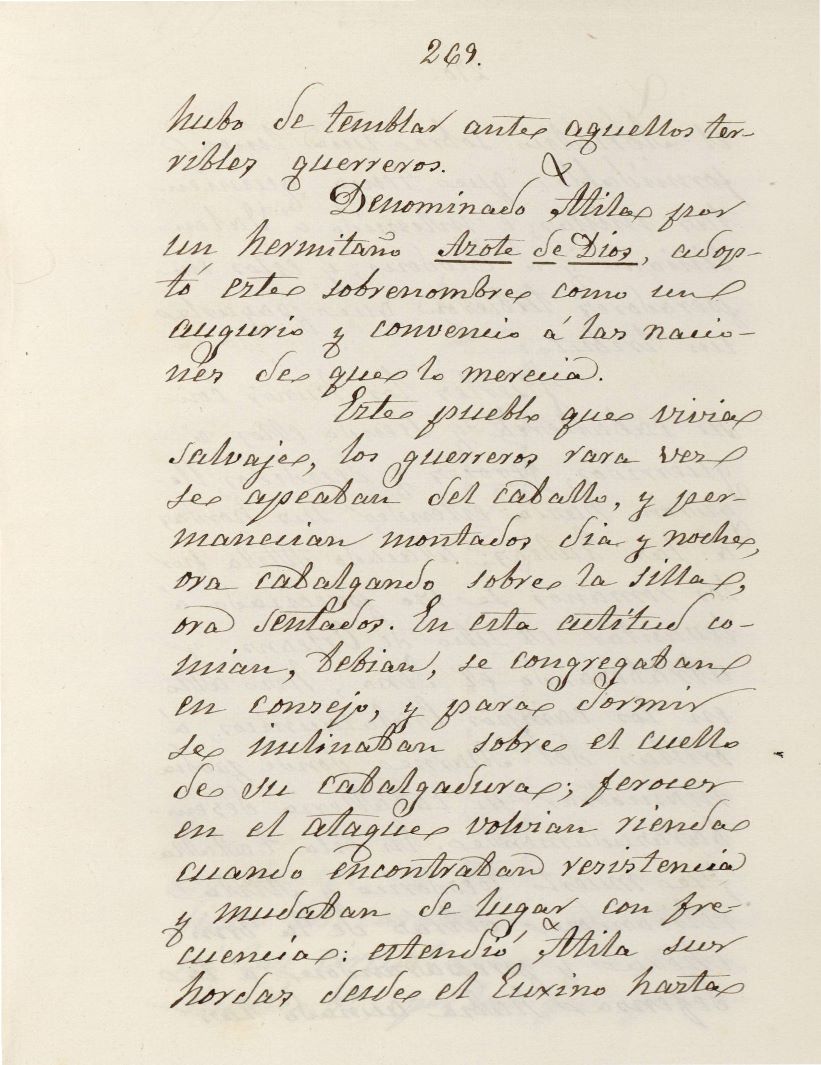 269.
hubo de temblar ante aquellos ter-
ribles guerreros.
Denominado Atila por
un hermitaño Azote de Dios, adop-
tó este sobrenombre como un
augurio y convencio á las nacio-
nes de que lo merecia.
Este pueblo que vivia
salvaje, los guerreros rara vez
se apeaban del caballo, y per-
manecian montados dia y noche,
ora cabalgando sobre la silla,
ora sentados. En esta actitud co-
mian, bebian, se congregaban
en consejo, y para dormir
se inclinaban sobre el cuello
de su cabalgadura; feroces
en el ataque volvian rienda
cuando encontraban resistencia
y mudaban de lugar con fre-
cuencia: estendió Atila sus
hordas desde el Euxino hasta